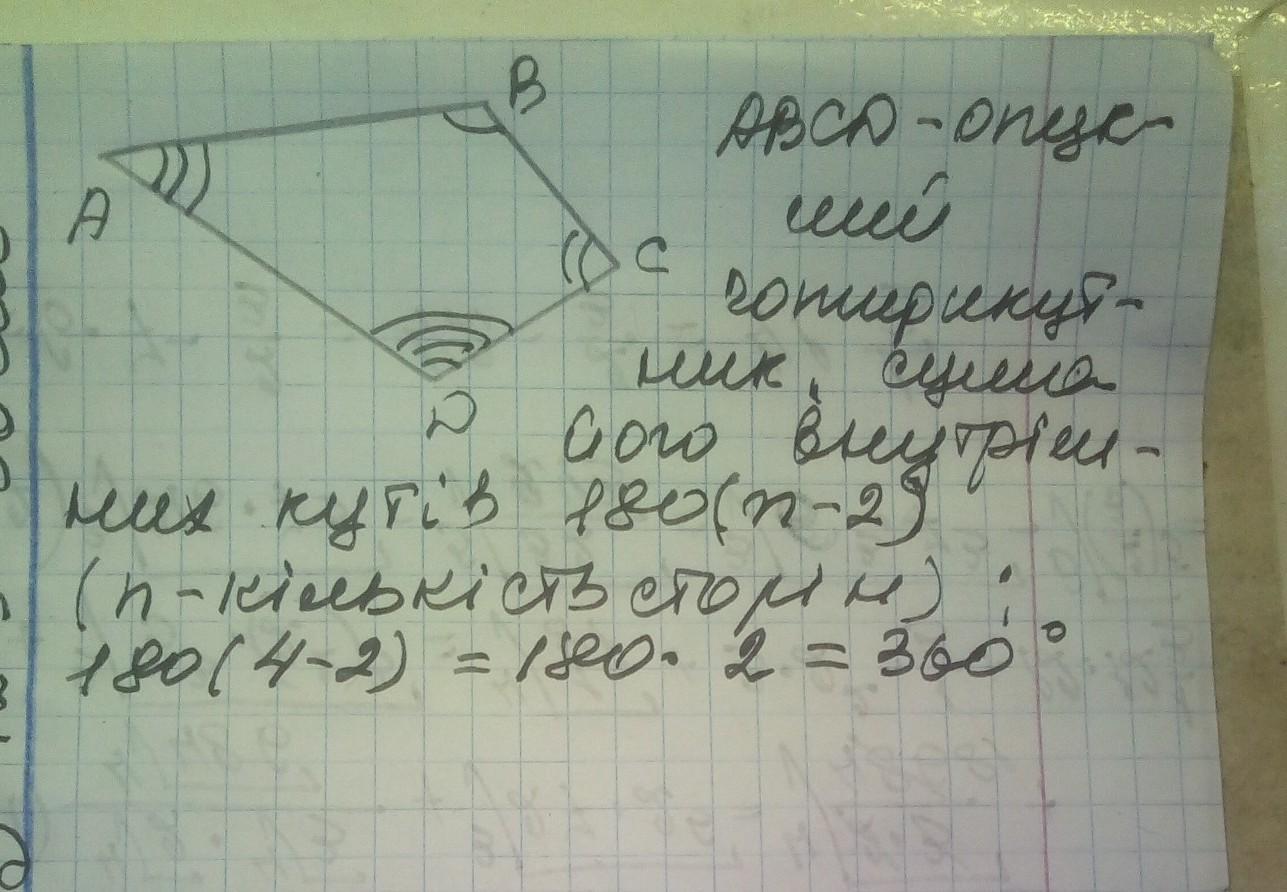 B
ABCD - опук-
лий
A
C
чотирикут-
ник, сума
D
його внутріш-
них кутів 180(n-2)
(n-кількість сторін) ;
180(4-2) = 180 · 2 = 360°